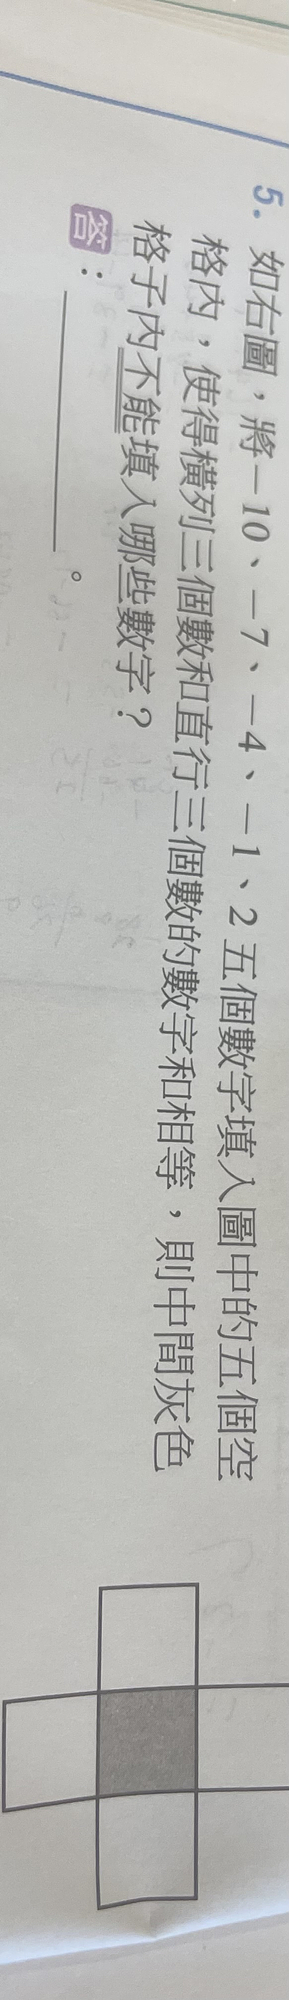 5. 如右圖，將－10、－7、－4、－1、2 五個數字填入圖中的五個空
格內，使得橫列三個數和直行三個數的數字和相等，則中間灰色
格子內不能填入哪些數字？
答：＿＿＿＿＿＿。